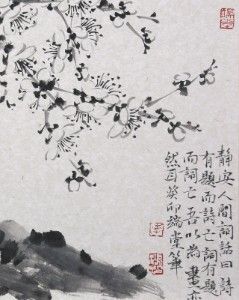 靜安人間詞話曰詩
有題而詩亡詞有題
而詞亡吾以為畫亦
然耳癸卯端堂筆